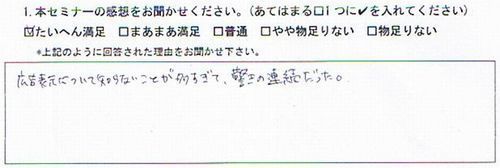 1. 本セミナーの感想をお聞かせください。(あてはまる□1つに✔を入れてください)
☑たいへん満足 □まあまあ満足 □普通 □やや物足りない □物足りない
*上記のように回答された理由をお聞かせ下さい。
広告表示について知らないことが多すぎて、驚きの連続だった。